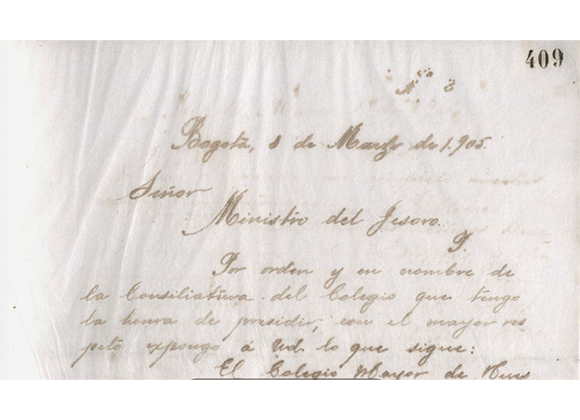 409
Nº 8
Bogotá, 8 de Marzo de 1.905.
Señor
Ministro del Tesoro.
P.
Por orden y en nombre de
la Consiliatura del Colegio que tengo
la honra de presidir, con el mayor res
peto expongo á Ud. lo que sigue:
El Colegio Mayor de Nues